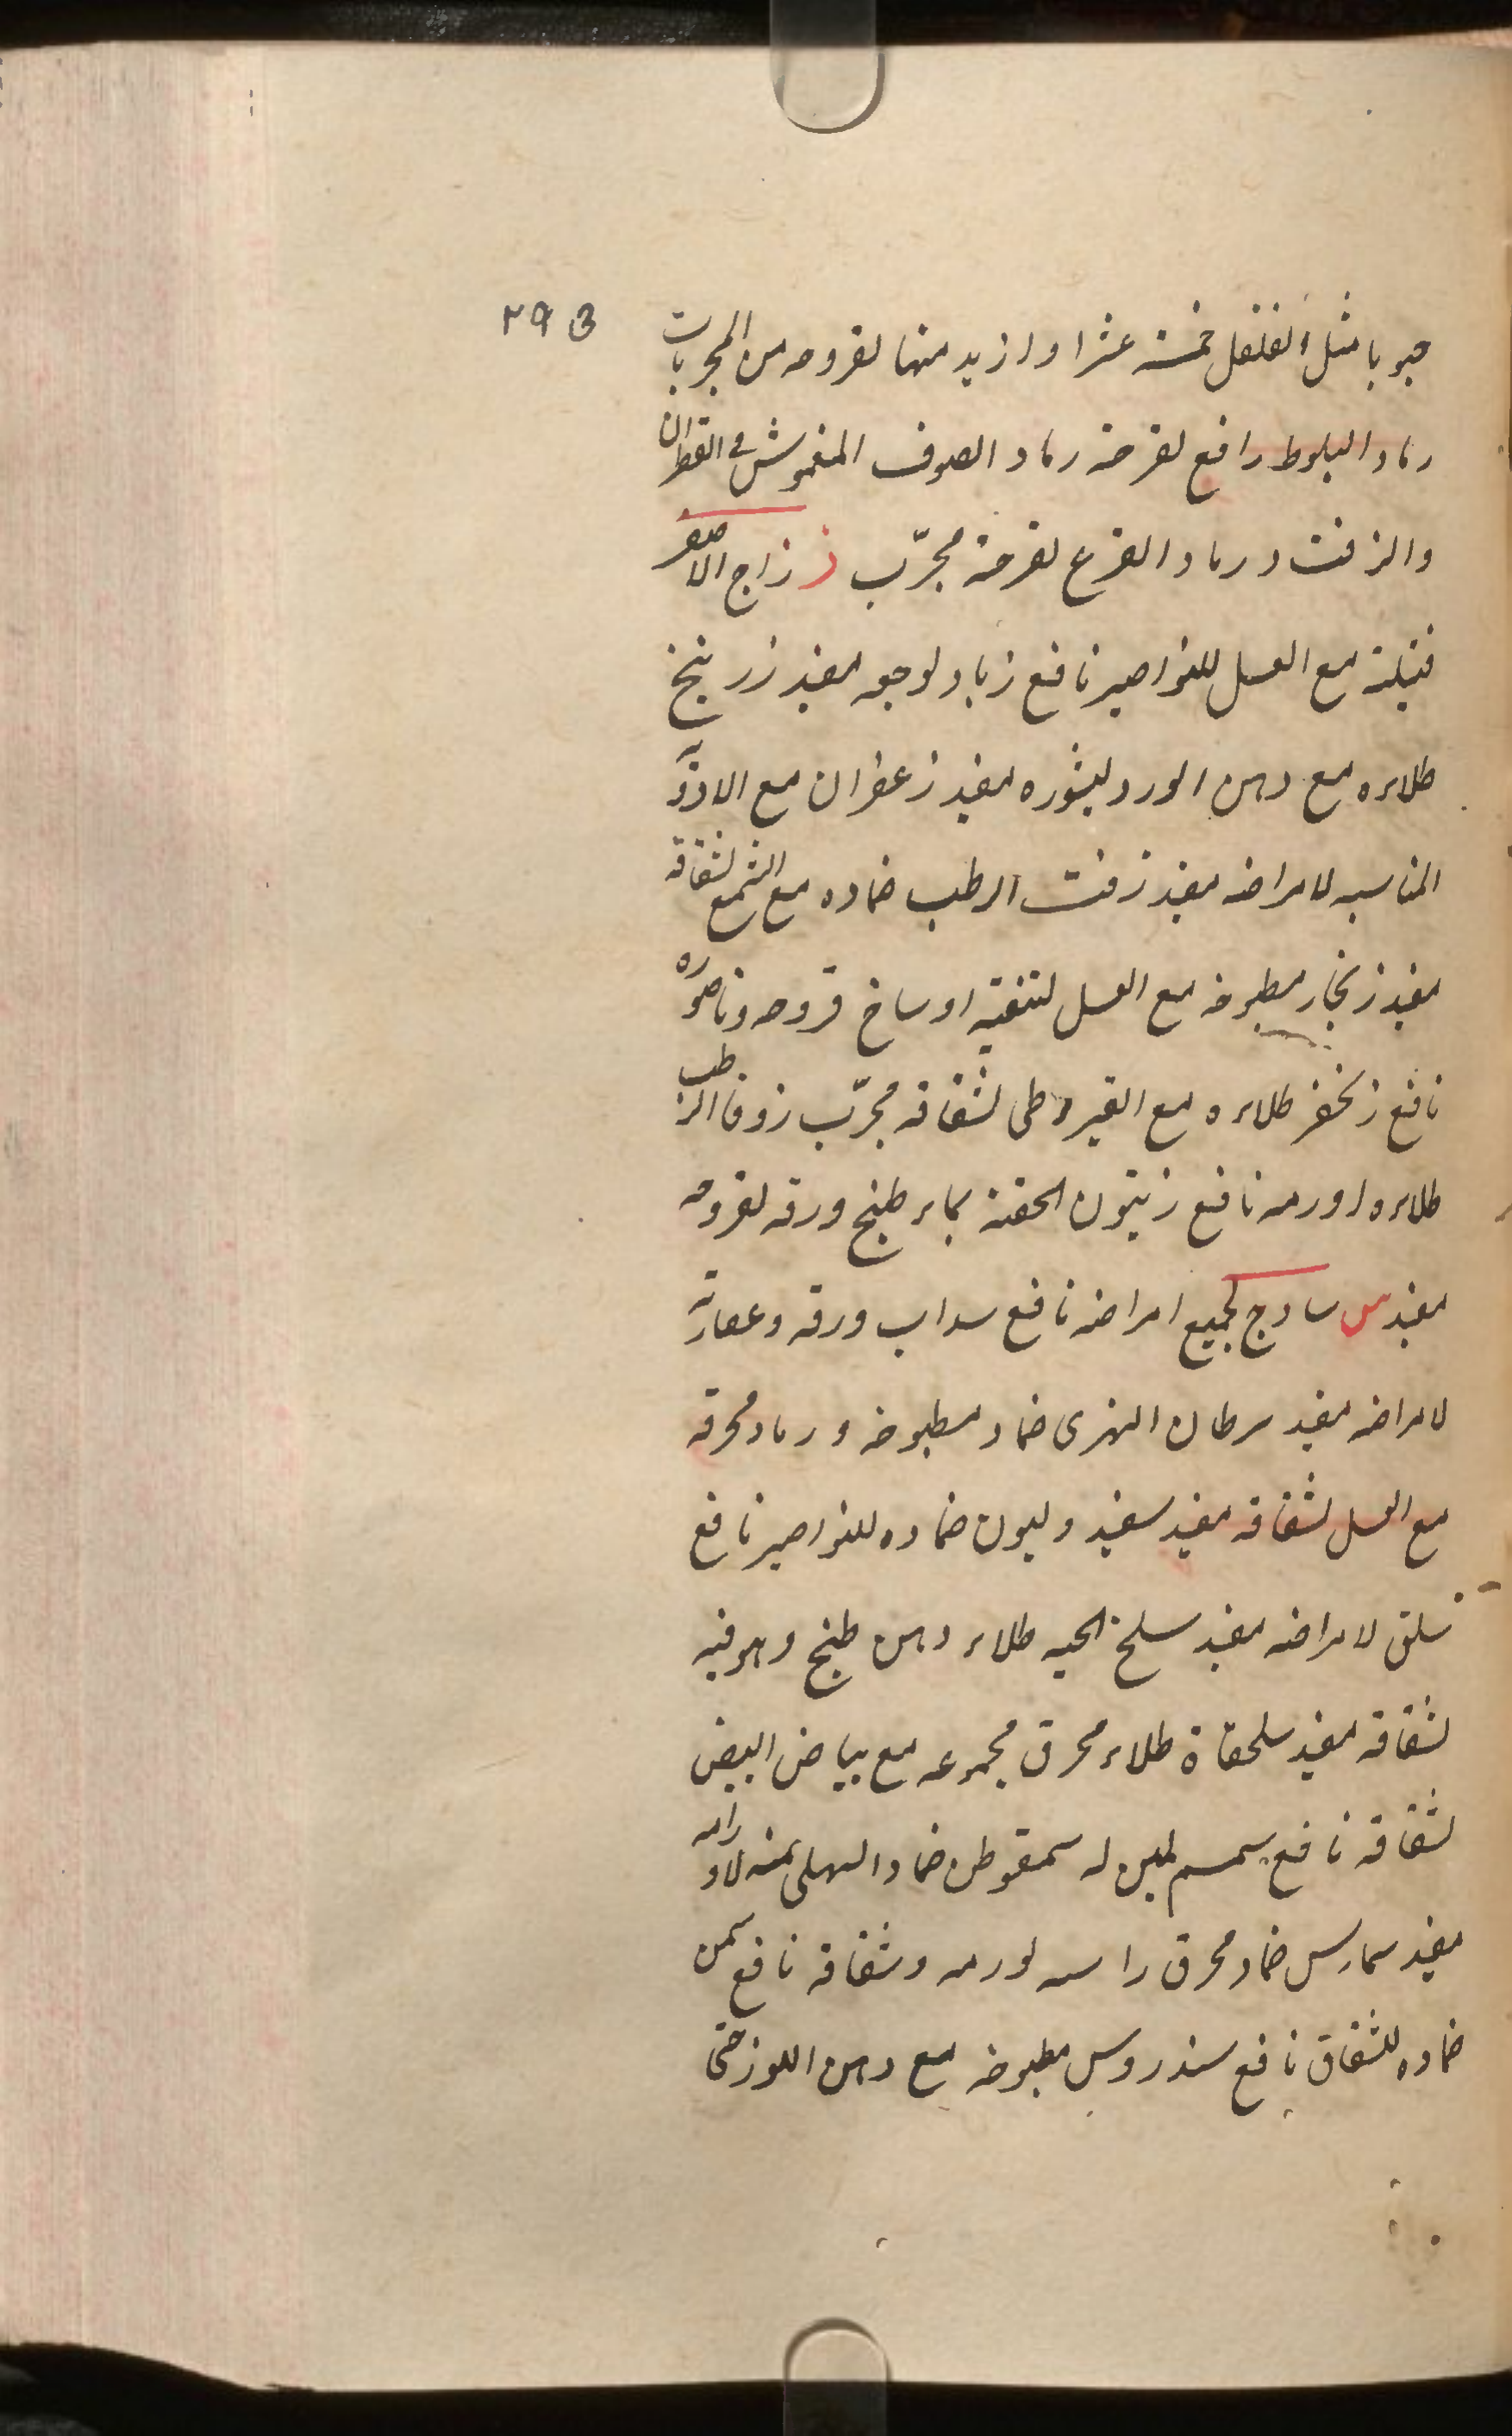 ٢٩٥
حبوبا مثل الفلفل خمسة عشرا وازيد منها لقروحه من المجربات
رماد البلوط رافع لقرحته رماد الصوف المغموش فى القطران
والزفت ورماد القرع لقرحته مجرّب ز زاج الاصفر
فتيلته مع العسل للنواصير نافع زباد لوجعه مفيد زرنيخ
طلاءه مع دهن الورد لبثوره مفيد زعفران مع الادويه
المناسبه لامراضه مفيد زفت الرطب ضماده مع الشمع لشقاقه
مفيد زنجار مطبوخه مع العسل لتنقيه اوساخ قروحه وناصوره
نافع زنجفر طلاءه مع القيروطى لشقاقه مجرّب زوفا الرطب
طلاءه اورمه نافع زيتون الحقنة بماء طبخ ورقه لقروحه
مفيد س سادج لجميع امراضه نافع سداب ورقه وعصارته
لامراضه مفيد سرطان النهرى ضماد مطبوخه ورماد محرقه
مع العسل لشقاقه مفيد سفيد وليون ضماده للنواصير نافع
سلق لامراضه مفيد سلخ الحيه طلاء دهن طبخ وهو فيه
لشقاقه مفيد سلحفاة طلاء محرق مجموعه مع بياض البيض
لشقاقه نافع سمسم لمين له سمقوطن ضماد السهلى منه لاورامه
مفيد سمارس ضماد محرق راسه لورمه وشقاقه نافع سمن
ضماده للشقاق نافع سندروس مطبوخه مع دهن اللوز حتى